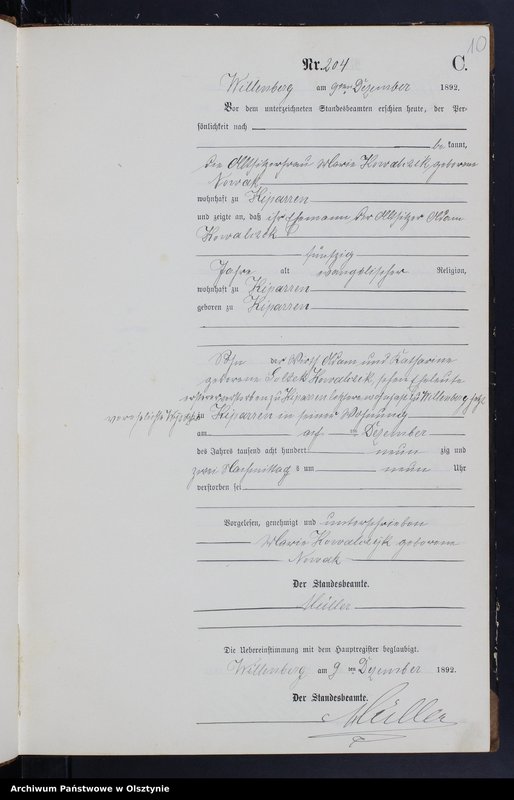 10
Nr. 204 C.
Willenberg am 9ten Dezember 1892.
Vor dem unterzeichneten Standesbeamten erschien heute, der Per-
sönlichkeit nach
be kannt,
die Altsitzerfrau Marie Kowalczik, geborene
Nowak
wohnhaft zu Kiparren
und zeigte an, daß ihr Ehemann der Altsitzer Adam
Kowalczik
fünfzig
Jahre alt evangelischer Religion,
wohnhaft zu Kiparren
geboren zu Kiparren
Sohn der Wirth Adam und Katharine
geborene Kowalczik, schen Eheleute
ersterer verstorben zu Kiparren letztere wohnhaft zu Willenberg jetzt
verehelichte
zu Kiparren in seiner Wohnung
am acht ten Dezember
des Jahres tausend acht hundert neun zig und
zwei Nachmittag s um neun Uhr
verstorben sei
Vorgelesen, genehmigt und unterschrieben
Marie Kowalczyk geborene
Nowak
Der Standesbeamte.
Müller
Die Uebereinstimmung mit dem Hauptregister beglaubigt.
Willenberg am 9 ten Dezember 1892.
Der Standesbeamte.
Müller
Archiwum Państwowe w Olsztynie